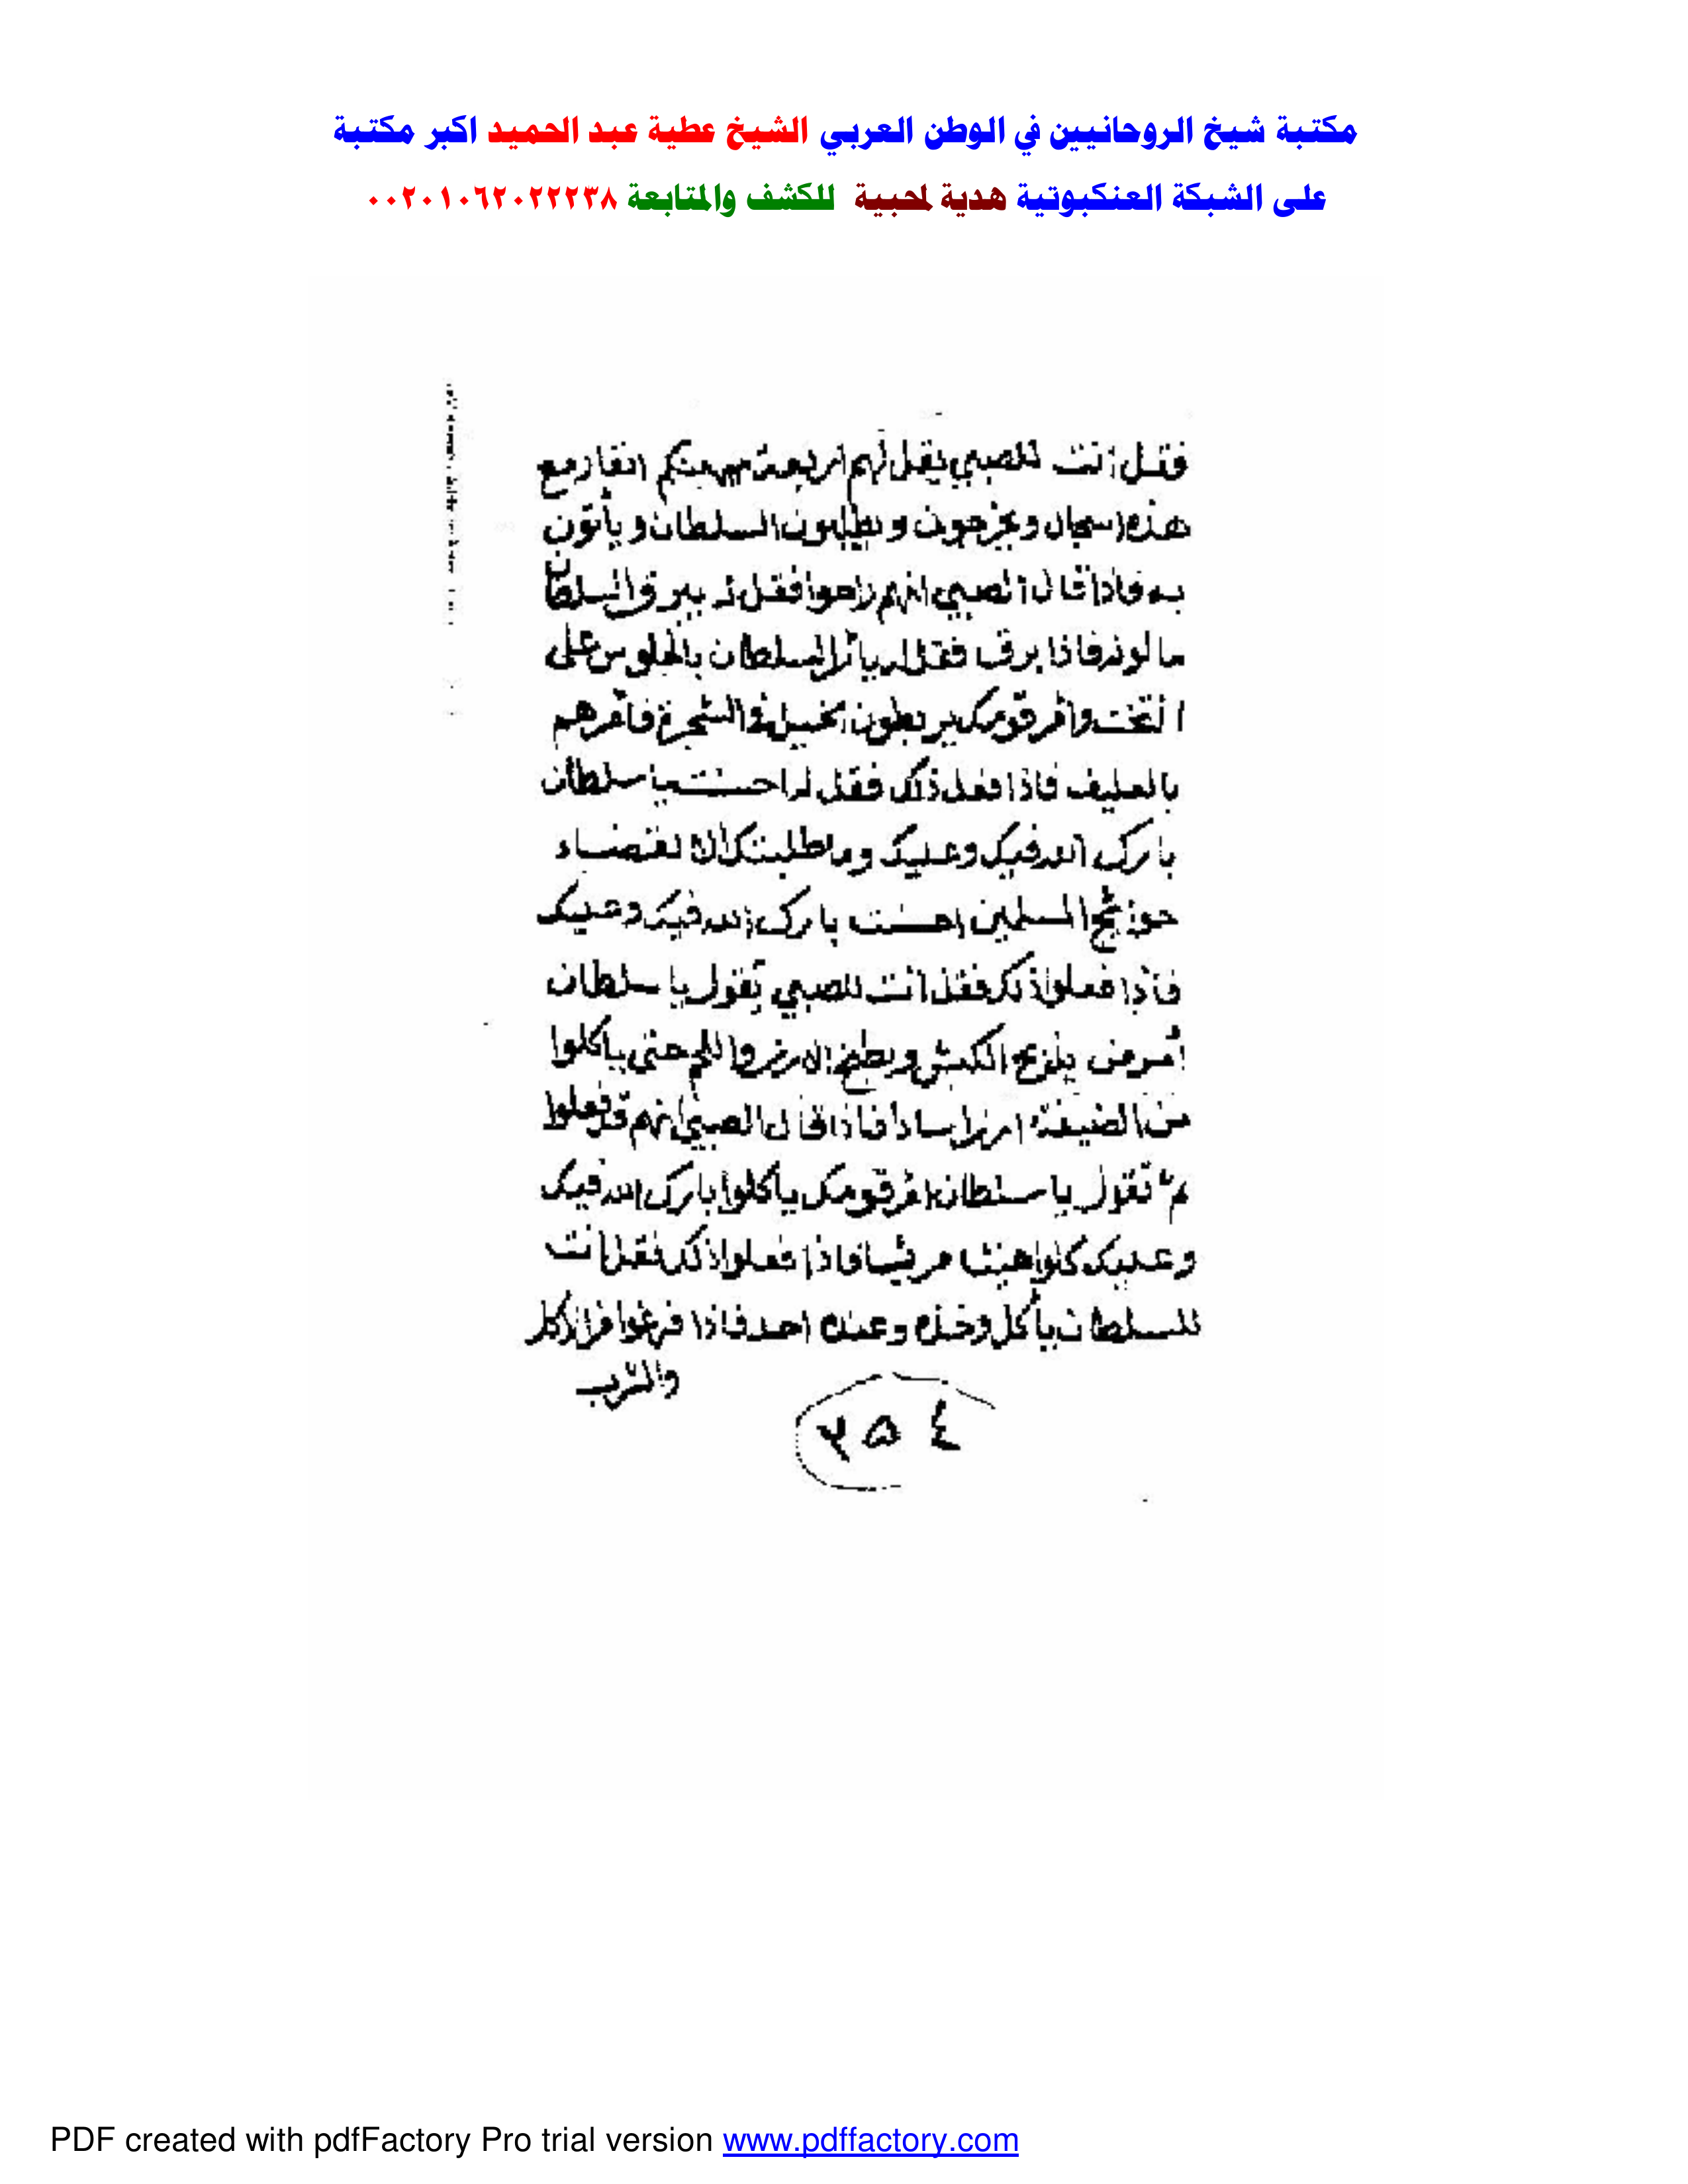 مكتبة شيخ الروحانيين في الوطن العربي الشيخ عطية عبد الحميد اكبر مكتبة
على الشبكة العنكبوتية هدية لمحبية للكشف والمتابعة ٠٠٢٠١٠٦٢٠٢٢٢٣٨
فقل انت للصبي يقل لهم اربعة منكم انفار مع
هذه ويخرجون ويطلبون السلطان ويأتون
به فاذا قال الصبي انهم راحوا فقل له بيرق السلطان
ما لونه فاذا برق فقل له يأمر السلطان بالجلوس على
التخت وأمر قومك يربطون الخيل في الشجرة فأمرهم
بالعليف فاذا فعل ذلك فقل له احسنت يا سلطان
بارك الله فيك وعليك وما طلبتك الا لقضاء
حوائج المسلمين احسنت بارك الله فيك وعليك
فاذا فعلوا ذلك فقل انت للصبي يقول يا سلطان
أمر من يذبح الكبش ويطبخ الارز واللحم حتى ياكلوا
من الضيفة فاذا قال الصبي انهم قد فعلوا
ثم تقول يا سلطان أمر قومك يأكلوا بارك الله فيك
وعليك كلوا هنيئا مريئا فاذا فعلوا ذلك فقل انت
للسلطان يأكل وحده وعنده احد فاذا فرغوا من الاكل
والشرب
٢٥٤
PDF created with pdfFactory Pro trial version www.pdffactory.com